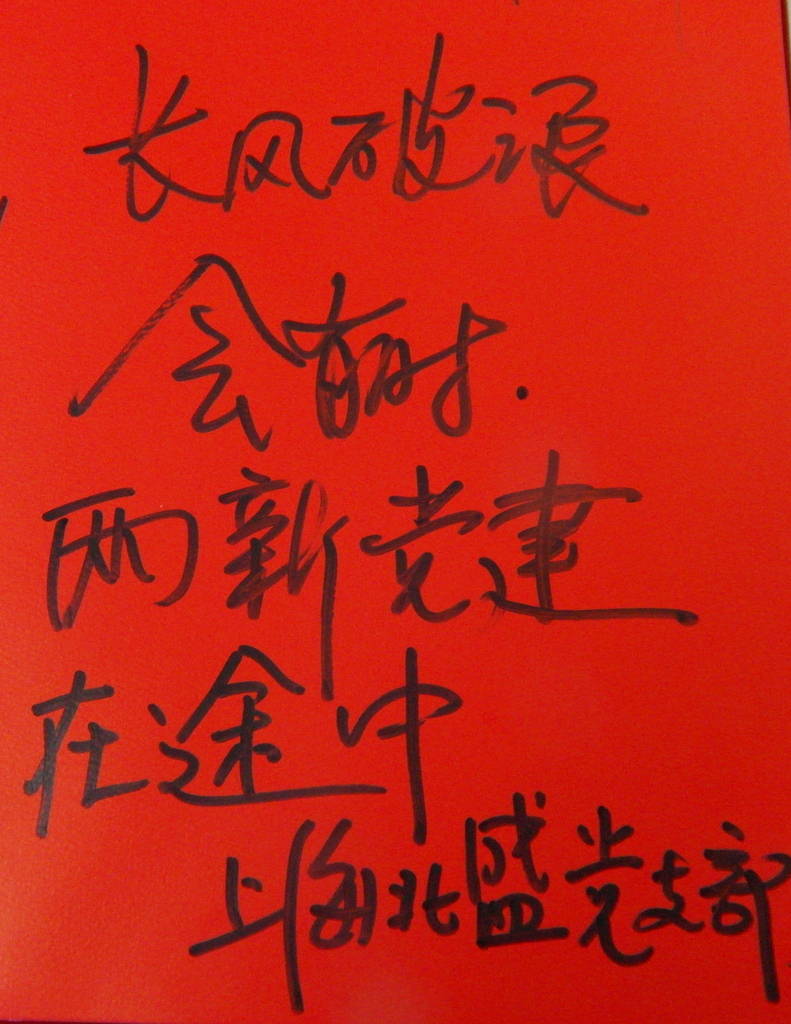 长风破浪
会有时.
两新党建
在途中
上海北盛党支部